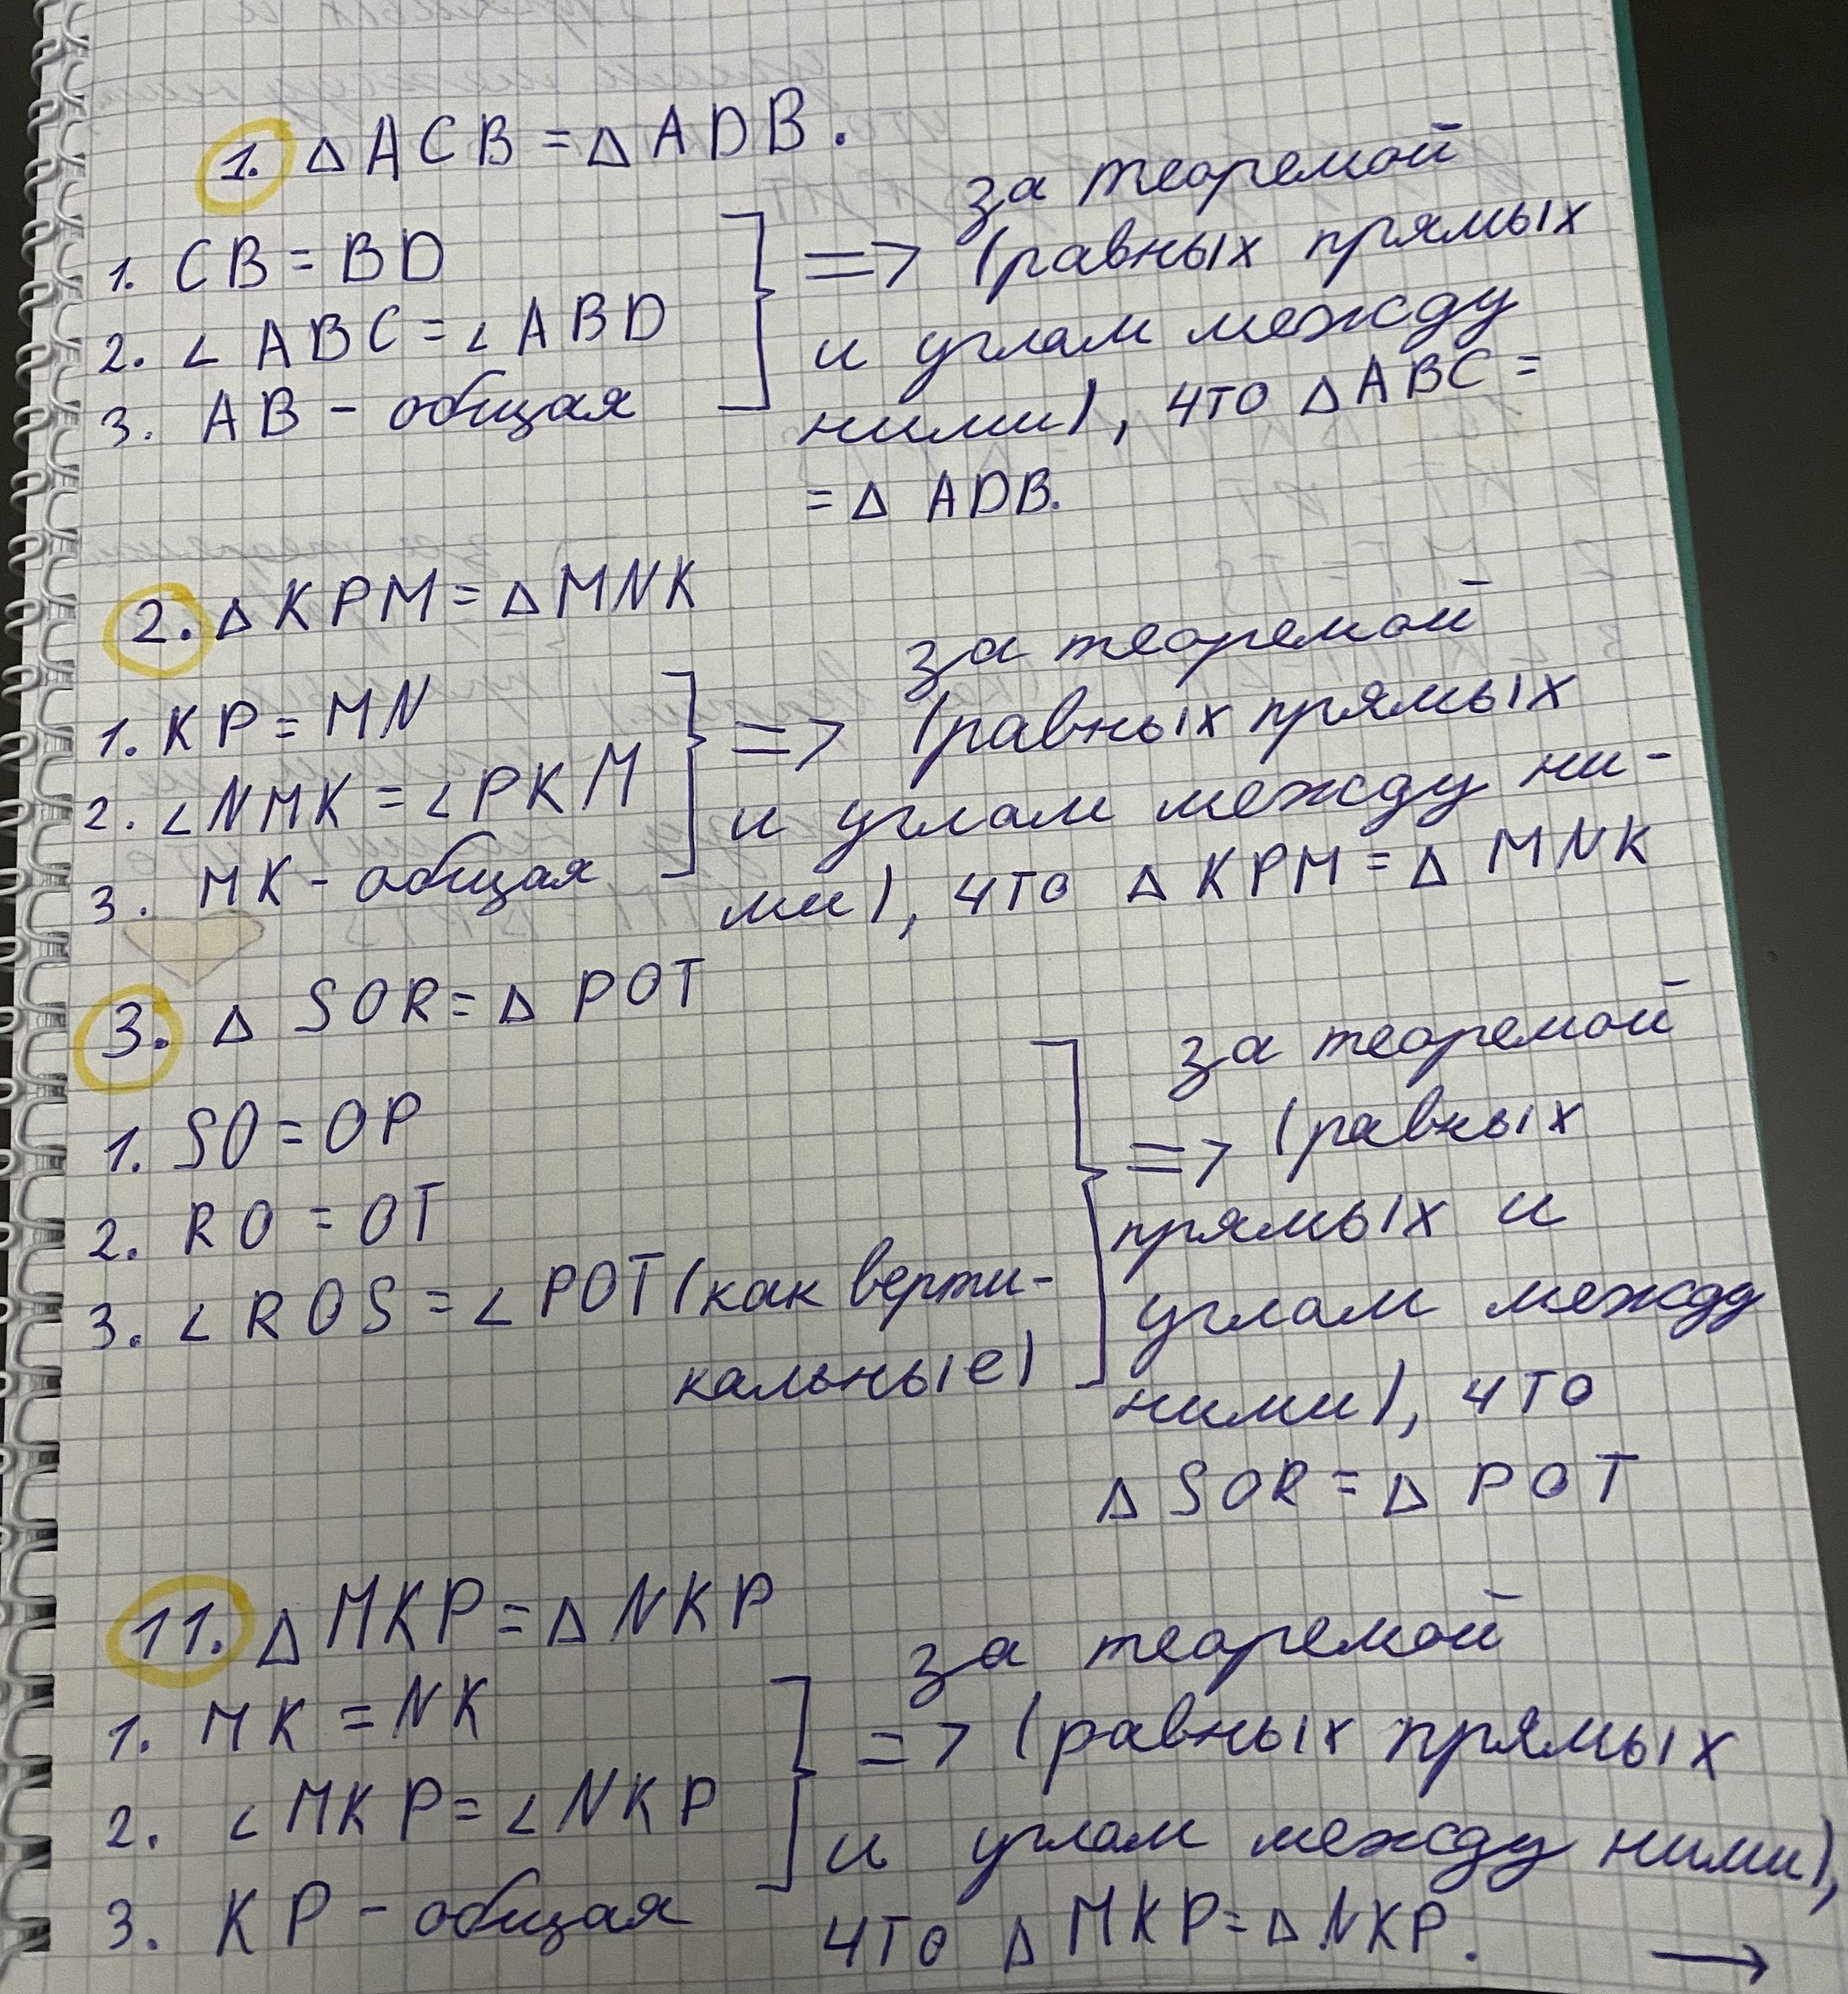 1. △ ACB = △ ADB.
1. CB = BD
2. ∠ ABC = ∠ ABD
3. AB - общая
за теоремой
=> (равных прямых
и углам между
ними), что △ ABC =
= △ ADB.
2. △ KPM = △ MNK
1. KP = MN
2. ∠NMK = ∠PKM
3. MK - общая
за теоремой
=> (равных прямых
и углам между ни-
ми), что △ KPM = △ MNK
3. △ SOR = △ POT
1. SO = OP
2. RO = OT
3. ∠ ROS = ∠ POT (как верти-
кальные)
за теоремой
=> (равных
прямых и
углам между
ними), что
△ SOR = △ POT
11. △ MKP = △ NKP
1. MK = NK
2. ∠ MKP = ∠ NKP
3. KP - общая
за теоремой
=> (равных прямых
и углам между ними),
что △ MKP = △ NKP. →